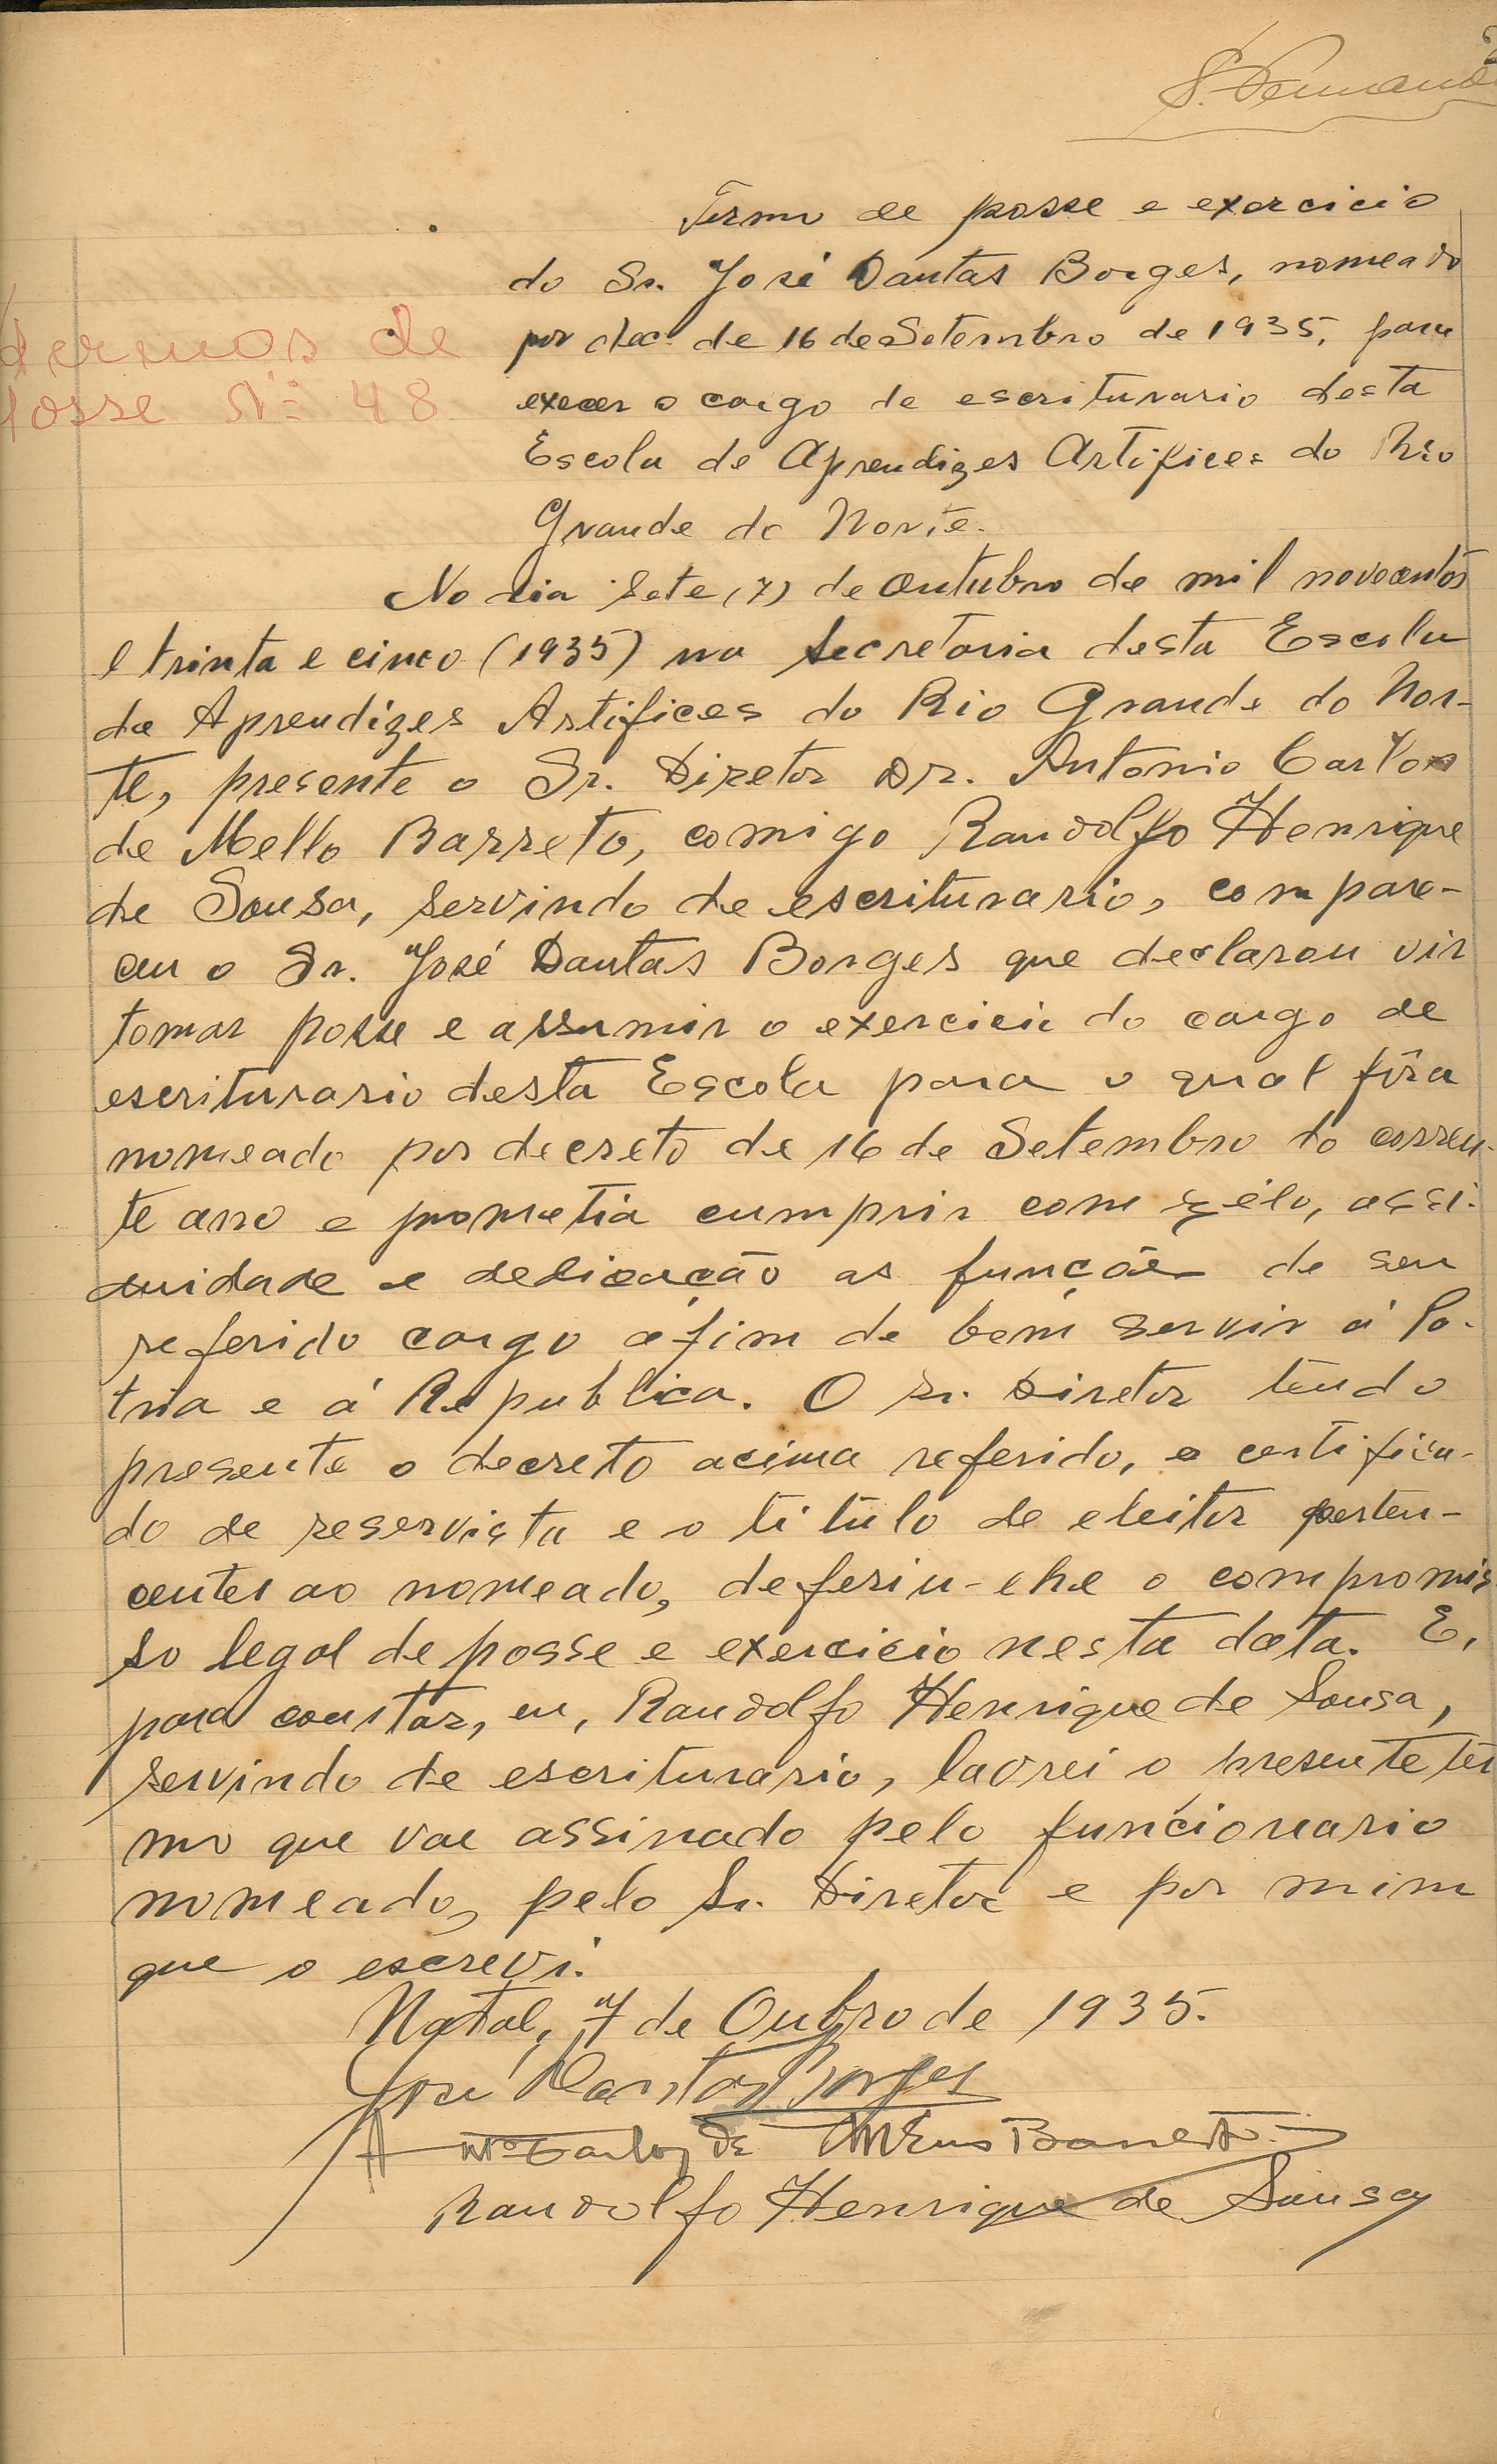 Termo de posse e exercicio
do Sr. José Dantas Borges, nomeado
por dec. de 16 de Setembro de 1935, para
execer o cargo de escriturario desta
Escola de Aprendizes Artifices do Rio
Grande do Norte.
Termos de
Posse Nº 48
No dia sete (7) de Outubro de mil novecentos
e trinta e cinco (1935) na Secretaria desta Escola
de Aprendizes Artifices do Rio Grande do Nor-
te, presente o Sr. Diretor Dr. Antonio Carlos
de Mello Barreto, comigo Randolfo Henrique
de Sousa, servindo de escriturario, compare-
ceu o Sr. José Dantas Borges que declarou vir
tomar posse e assumir o exercicio do cargo de
escriturario desta Escola para o qual fôra
nomeado por decreto de 16 de Setembro do corren-
te ano e prometia cumprir com zêlo, assi-
duidade e dedicação as funções de seu
referido cargo afim de bem servir á Pa-
tria e á Republica. O Sr. Diretor tendo
presente o decreto acima referido, o certifica-
do de reservista e o titulo de eleitor perten-
centes ao nomeado, deferiu-lhe o compromis
so legal de posse e exercicio nesta data. E,
para constar, eu, Randolfo Henrique de Sousa,
servindo de escriturario, lavrei o presente ter
mo que vae assinado pelo funcionario
nomeado, pelo Sr. Diretor e por mim
que o escrevi.
Natal, 7 de Oubro de 1935.
José Dantas Borges
Antº Carlos de Mello Barreto
Randolfo Henrique de Sousa